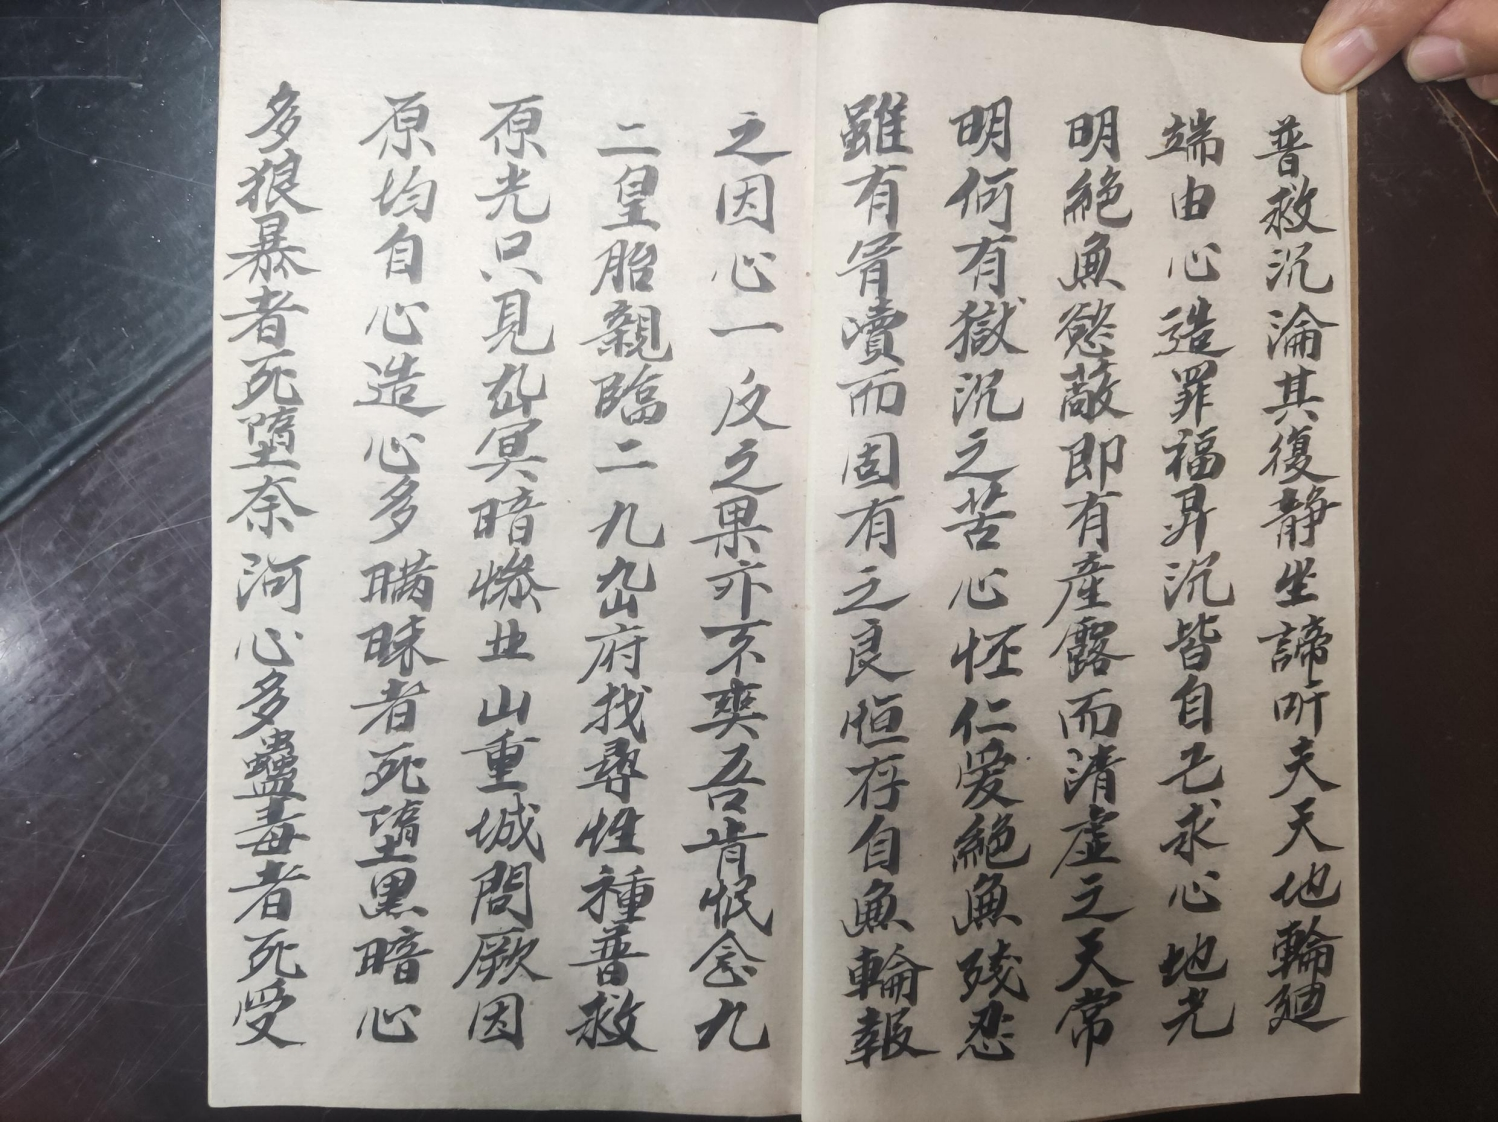 普救沉淪其復静坐諦听夫天地輪廻
端由心造罪福昇沉皆自己求心地光
明絕無慾蔽即有產露而清虛之天常
明何有獄沉之苦心怀仁爱絕無殘忍
雖有胥瀆而固有之良恒存自無輪報
之因心一反之果亦不爽吾肯恨念九
二皇胎親臨二九岔府找尋性種普救
原光只見岔冥暗慘业山重城問厥因
原均自心造心多瞞昧者死墮黑暗心
多狼暴者死墮奈河心多蠱毒者死受